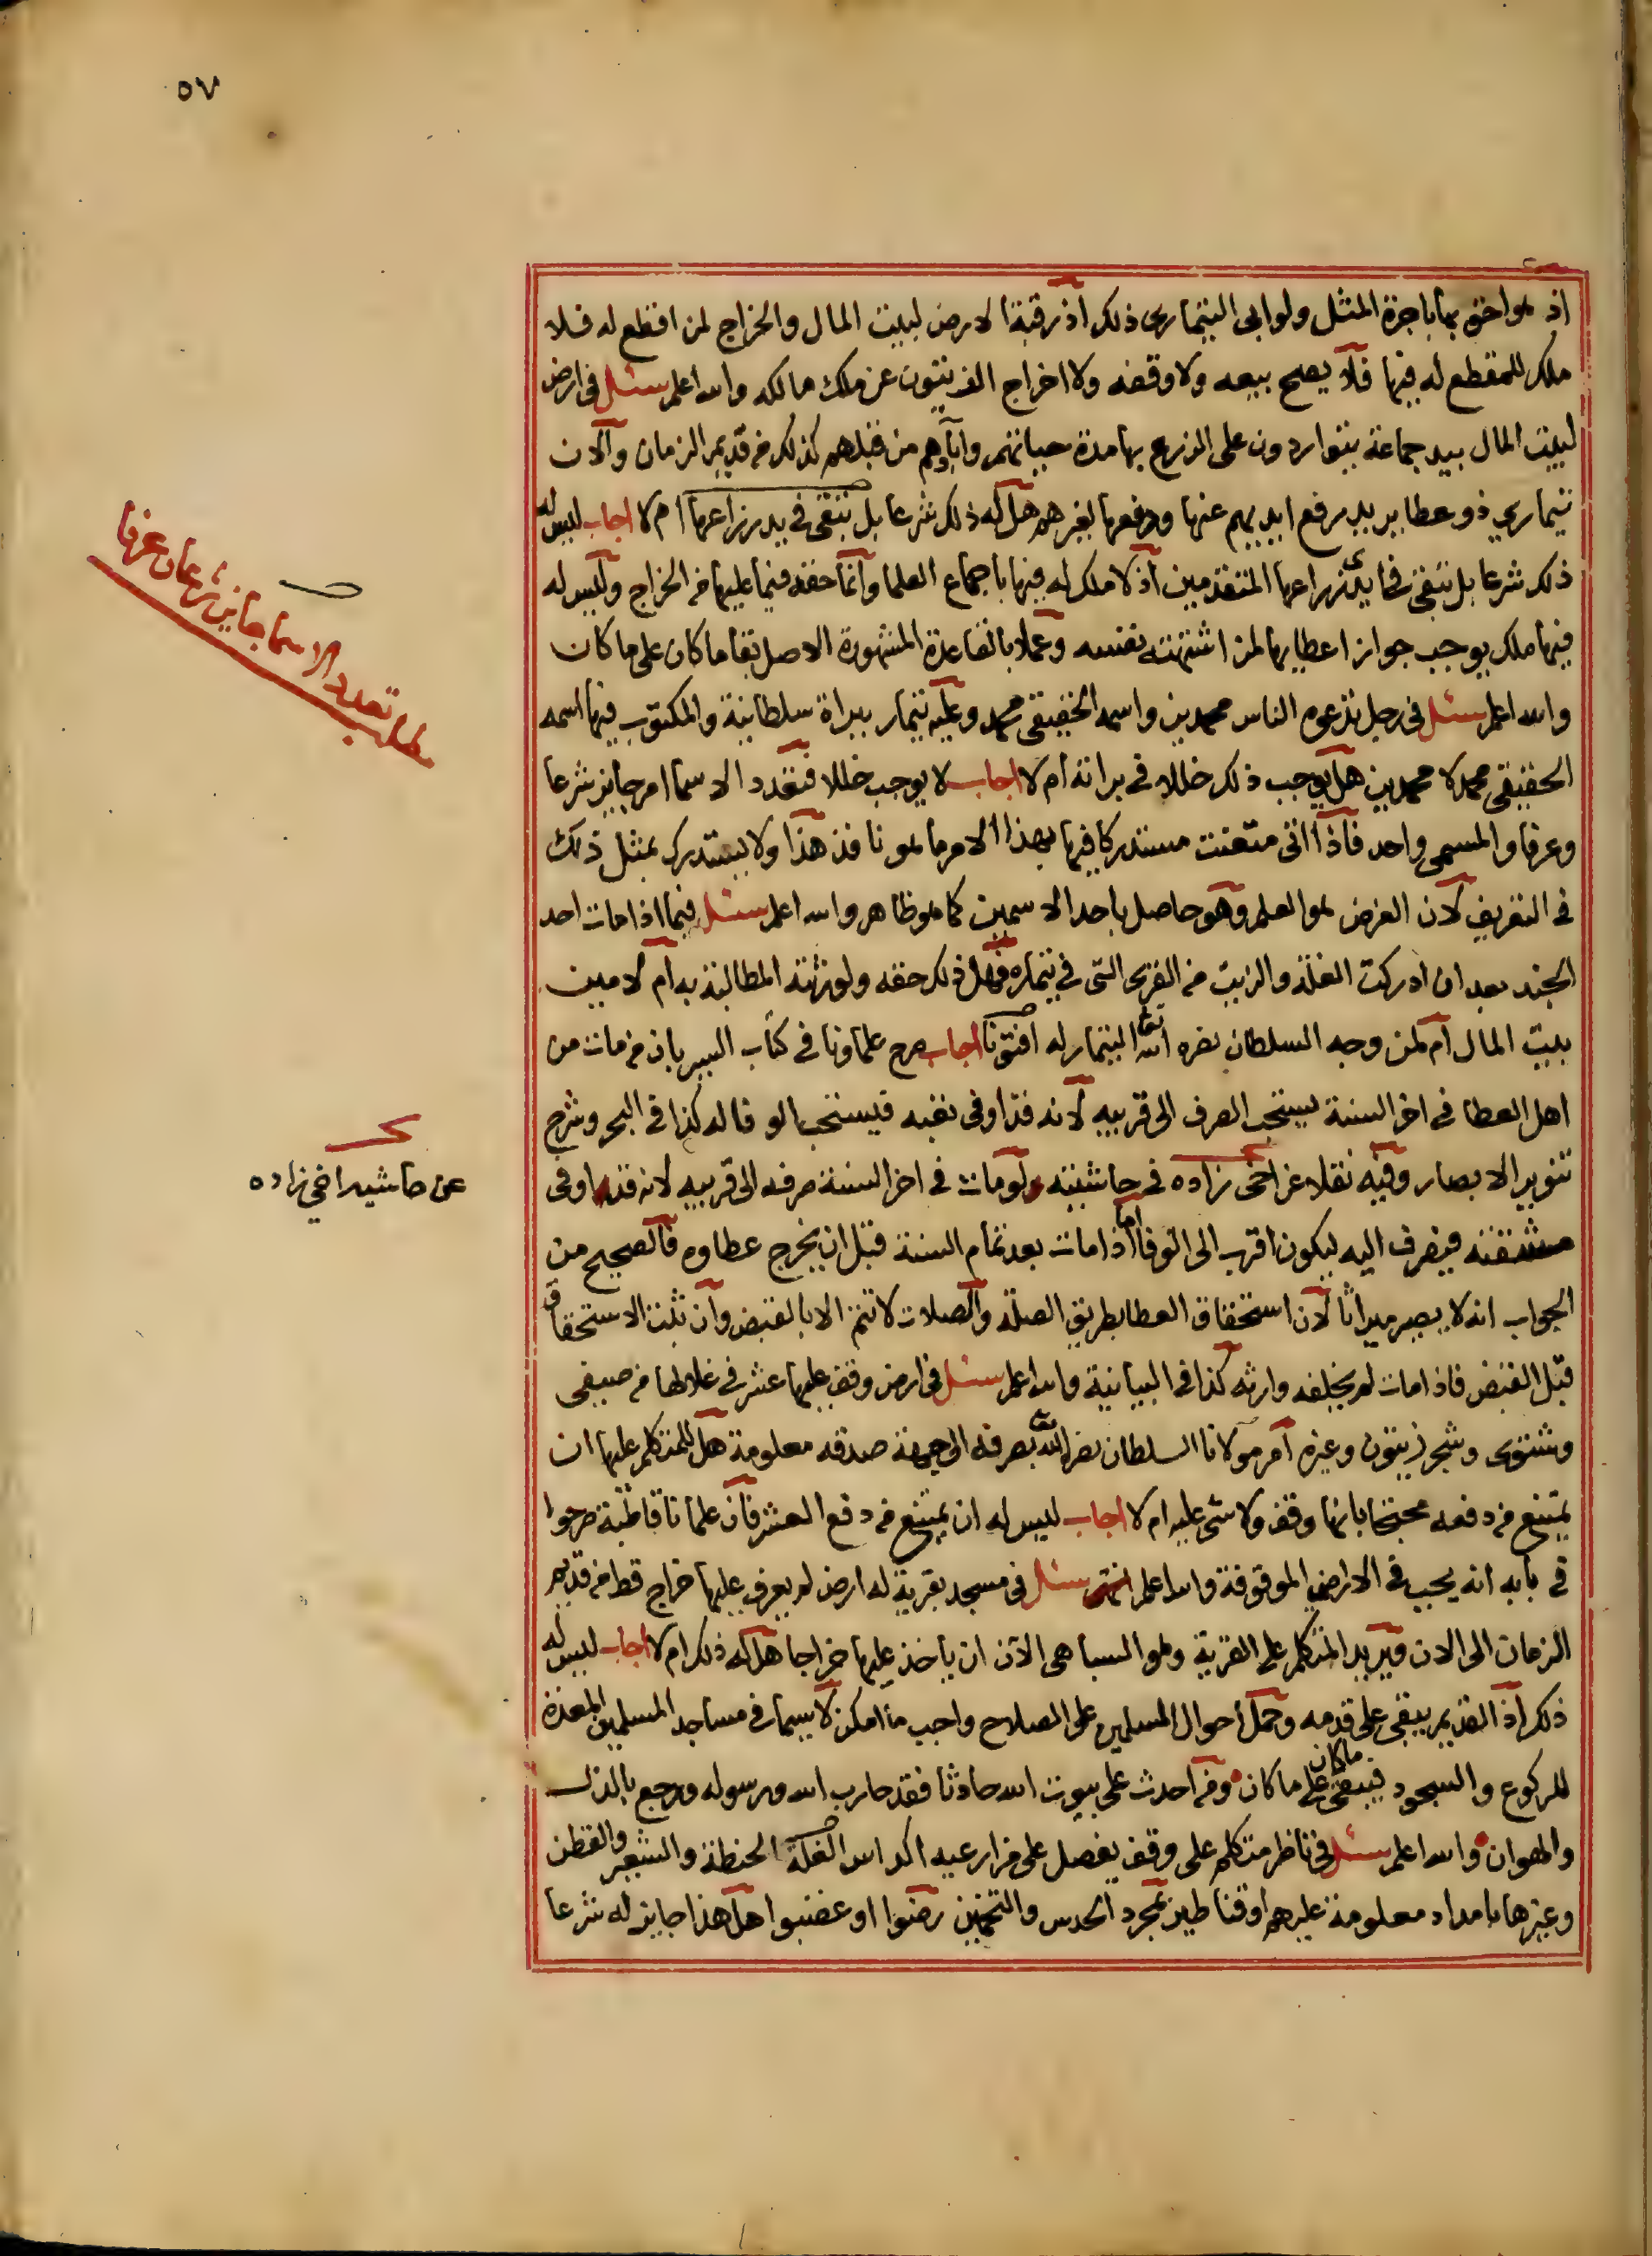 ٥٧
اذ هو احق بها باجرة المثل ولو ابى التيمارى ذلك اذ رقبة الارض لبيت المال والخراج لمن اقطع له فلا
ملك للمقطع له فيها فلا يصح بيعه ولا وقفه ولا اخراج الزيتون عن ملك مالكه والله اعلم سئل فى ارض
لبيت المال بيد جماعة يتواردون على الزرع بها مدة حياتهم واباؤهم من قبلهم كذلك من قديم الزمان والان
تيمارى ذو عطا يريد رفع ايديهم عنها ودفعها لغيرهم هل له ذلك شرعا بل تبقى في يد زراعها ام لا اجاب ليس له
ذلك شرعا بل تبقى في ايدى زراعها المتقدمين اذ لا ملك له فيها باجماع العلما وانما حقه فيما يليها من الخراج وليس له
فيها ملك يوجب جواز اعطايها لمن اشتهته نفسه وعملا بالقاعدة المشهورة الاصل بقا ما كان على ما كان
والله اعلم سئل فى رجل تدعوه الناس محمدين واسمه الحقيقى محمد وعليه تيمار ببراة سلطانية والمكتوب فيها اسمه
الحقيقى محمد لا محمدين هل يوجب ذلك خللا في براته ام لا اجاب لا يوجب خللا فتعدد الاسما امر جايز شرعا
وعرفا والمسمى واحد فاذا اتى متعنت مستدركا فيها بهذا الامر ما هو نافذ هذا ولا يستدرك بمثل ذلك
فى التعريف لان الغرض هو العلم وهو حاصل باحد الاسمين كما هو ظاهر والله اعلم سئل فيما اذا مات احد
الجند بعد ان ادركت الغلة والزيت من القرى التى في تيماره فهل ذلك حقه ولورثته المطالبة به ام لامين
بيت المال ام لمن وجه السلطان نصره الله تعالى التيمار له افتونا اجاب صرح علماونا فى كتاب السير بان من مات من
اهل العطا فى اخر السنة يستحب الصرف الى قريبه لانه قد اوفى تعبه فيستحب الوفا له كذا فى البحر وشرح
تنوير الابصار وفيه نقلا عن اخى زاده في حاشيته ولو مات فى اخر السنة صرفه الى قريبه لانه قد اوفى
مشقته فيصرف اليه ليكون اقرب الى الوفا اما اذا مات بعد تمام السنة قبل ان يخرج عطاوه فالصحيح من
الجواب انه لا يصير ميراثا لان استحقاق العطا بطريق الصلة والصلات لا تتم الا بالقبض وان ثبت الاستحقاق
قبل القبض فاذا مات لم يخلفه وارثه كذا فى البيانية والله اعلم سئل فى ارض وقف عليها عشر في غلالها من صيفى
وشتوى وشجر زيتون وغيره امر مولانا السلطان نصره الله تعالى بصرفه الى جهة صدقه معلومة هل للمتكلم عليها ان
يمتنع من دفعه محتجا بانها وقف ولا شى عليه ام لا اجاب ليس له ان يمتنع من دفع العشر فان علمانا قاطبة صرحوا
في بابه انه يجب فى الاراضى الموقوفة والله اعلم انتهى سئل فى مسجد بقرية له ارض لم يعرف عليها خراج قط من قديم
الزمان الى الان ويريد المتكلم على القرية وهو السباهى الان ان ياخذ عليها خراجا هل له ذلك ام لا اجاب ليس له
ذلك اذ القديم يبقى على قدمه وحمل احوال المسلمين على الصلاح واجب ما امكن لا سيما في مساجد المسلمين المعدة
للركوع والسجود فيبقى ما كان على ما كان ومن احدث على بيوت الله حادثا فقد حارب الله ورسوله ورجع بالذل
والهوان والله اعلم سئل فى ناظر متكلم على وقف يفصل على مزارعيه اكداس الغلة الحنطة والشعير والقطن
وغيرها بامداد معلومة عليهم او قناطير بمجرد الحدس والتخمين رضوا او غضبوا هل هذا جايز له شرعا
مطلب تعدد الاسما جايز شرعا وعرفا
عن حاشية اخى زاده